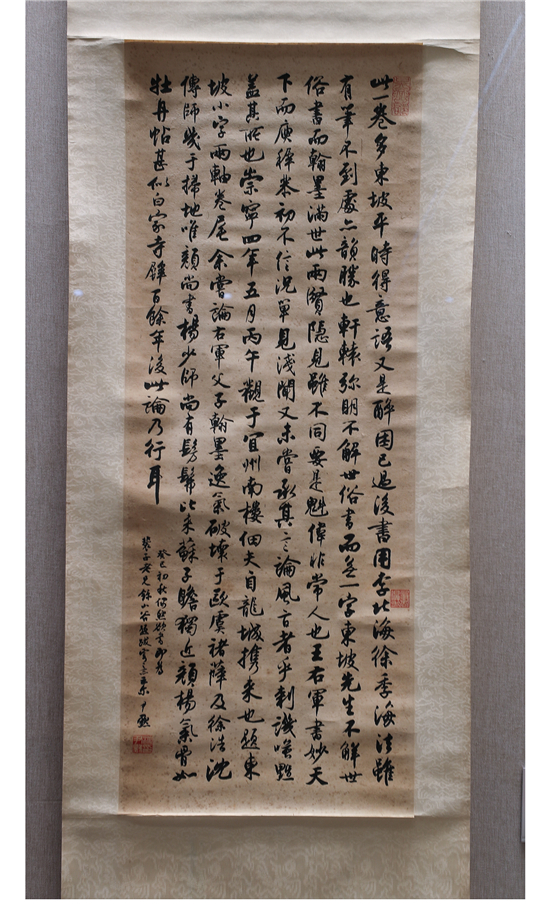 此一卷多東坡平時得意語又是醉困已過後書用李北海徐季海法雖
有筆不到處亦韻勝也軒轅弥明不解世俗書而無一字東坡先生不解世
俗書而翰墨滿世此兩賢隱見雖不同要是魁偉非常人也王右軍書妙天
下而庾稚恭初不信況單見淺聞又未嘗承其言論風旨者乎刺譏嗤點
蓋其所也崇寧四年五月丙午觀于宜州南樓佃夫自龍城攜來也題東
坡小字兩軸卷尾余嘗論右軍父子翰墨逸氣破壞于歐虞褚薛及徐浩沈
傳師幾于掃地唯顏尚書楊少師尚有髣髴比來蘇子瞻獨近顏楊氣骨如
牡丹帖甚似白家寺壁百餘年後此論乃行耳
癸巳初秋
老兄錄山谷題跋 尹默